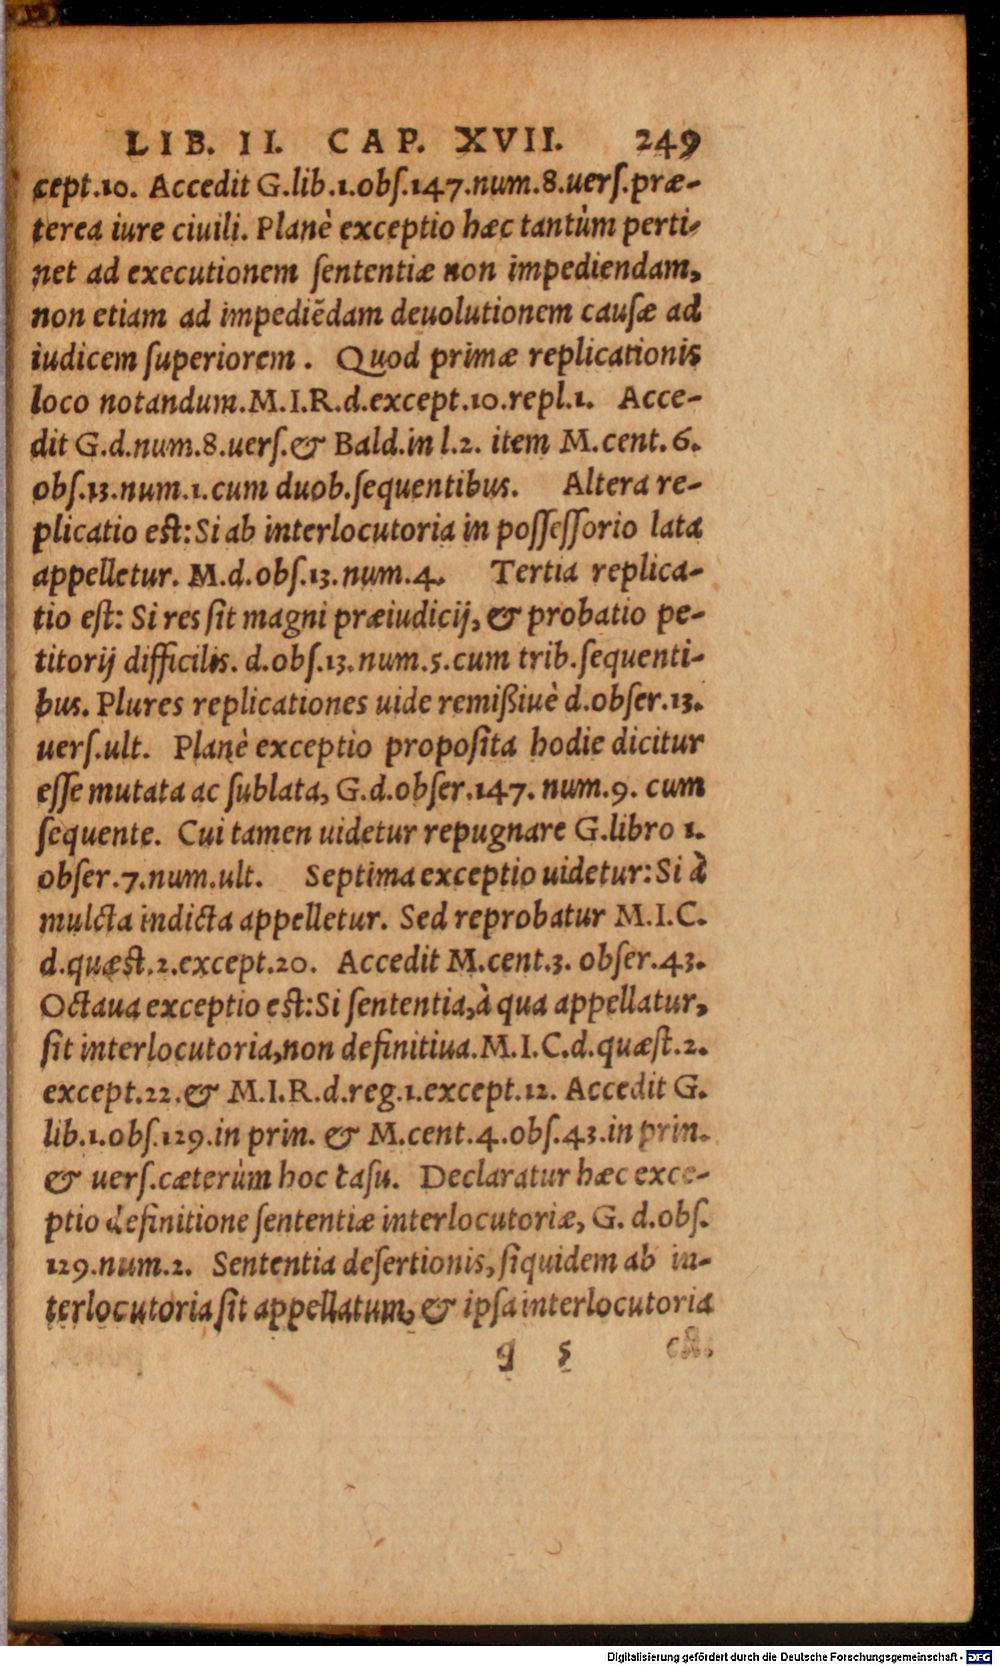 LIB. II. CAP. XVII. 249
cept.10. Accedit G.lib.1.obſ.147.num.8.uerſ.præ-
terea iure ciuili. Planè exceptio hæc tantùm perti-
net ad executionem ſententiæ non impediendam,
non etiam ad impediẽdam deuolutionem cauſæ ad
iudicem ſuperiorem. Quod primæ replicationis
loco notandum.M.I.R.d.except.10.repl.1. Acce-
dit G.d.num.8.uerſ.& Bald.in l.2. item M.cent.6.
obſ.13.num.1.cum duob.ſequentibus. Altera re-
plicatio est: Si ab interlocutoria in poſſeſſorio lata
appelletur. M.d.obſ.13.num.4. Tertia replica-
tio eſt: Si res ſit magni præiudicij, & probatio pe-
titorij difficilis. d.obſ.13.num.5.cum trib.ſequenti-
bus. Plures replicationes uide remißiuè d.obſer.13.
uerſ.ult. Planè exceptio propoſita hodie dicitur
eſſe mutata ac ſublata, G.d.obſer.147. num.9. cum
ſequente. Cui tamen uidetur repugnare G.libro 1.
obſer.7.num.ult. Septima exceptio uidetur: Si à
mulcta indicta appelletur. Sed reprobatur M.I.C.
d.quæst.2.except.20. Accedit M.cent.3. obſer.43.
Octaua exceptio est: Si ſententia, à qua appellatur,
ſit interlocutoria, non definitiua.M.I.C.d.quæſt.2.
except.22.& M.I.R.d.reg.1.except.12. Accedit G.
lib.1.obſ.129.in prin. & M.cent.4.obſ.43.in prin.
& uerſ.cæterùm hoc caſu. Declaratur hæc exce-
ptio definitione ſententiæ interlocutoriæ, G. d.obſ.
129.num.2. Sententia deſertionis, ſiquidem ab in-
terlocutoria ſit appellatum, & ipſa interlocutoria
q 5
Digitalisierung gefördert durch die Deutsche Forschungsgemeinschaft - DFG